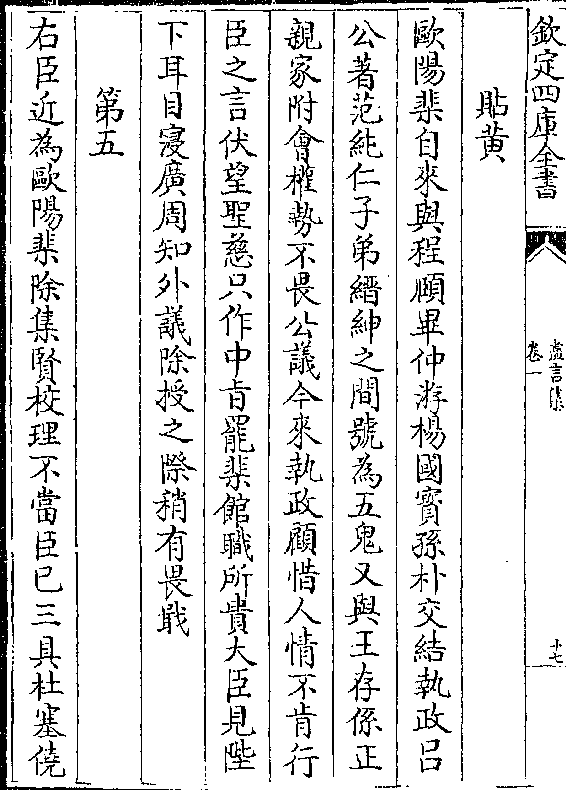 欽定四庫全書
盡言集
卷一
十七
貼黄
歐陽棐自來與程頤畢仲游楊國寶孫朴交結執政吕
公著范純仁子弟縉紳之間號為五鬼又與王存係正
親家附會權勢不畏公議今來執政顧惜人情不肯行
臣之言伏望聖慈只作中旨罷棐館職所貴大臣見陛
下耳目寖廣周知外議除授之際稍有畏戢
第五
右臣近為歐陽棐除集賢校理不當臣已三具杜塞僥